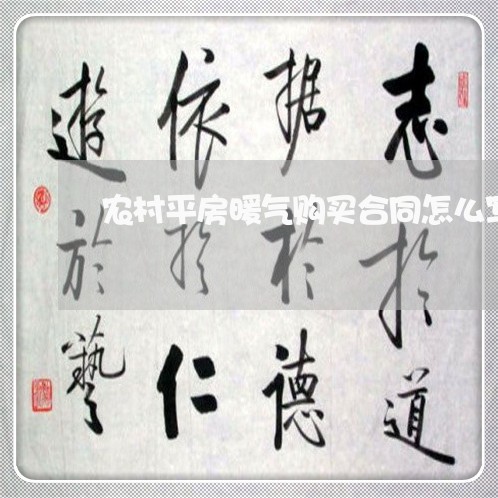 志於道
据於德
依於仁
遊於藝
农村平房暖气购买合同怎么